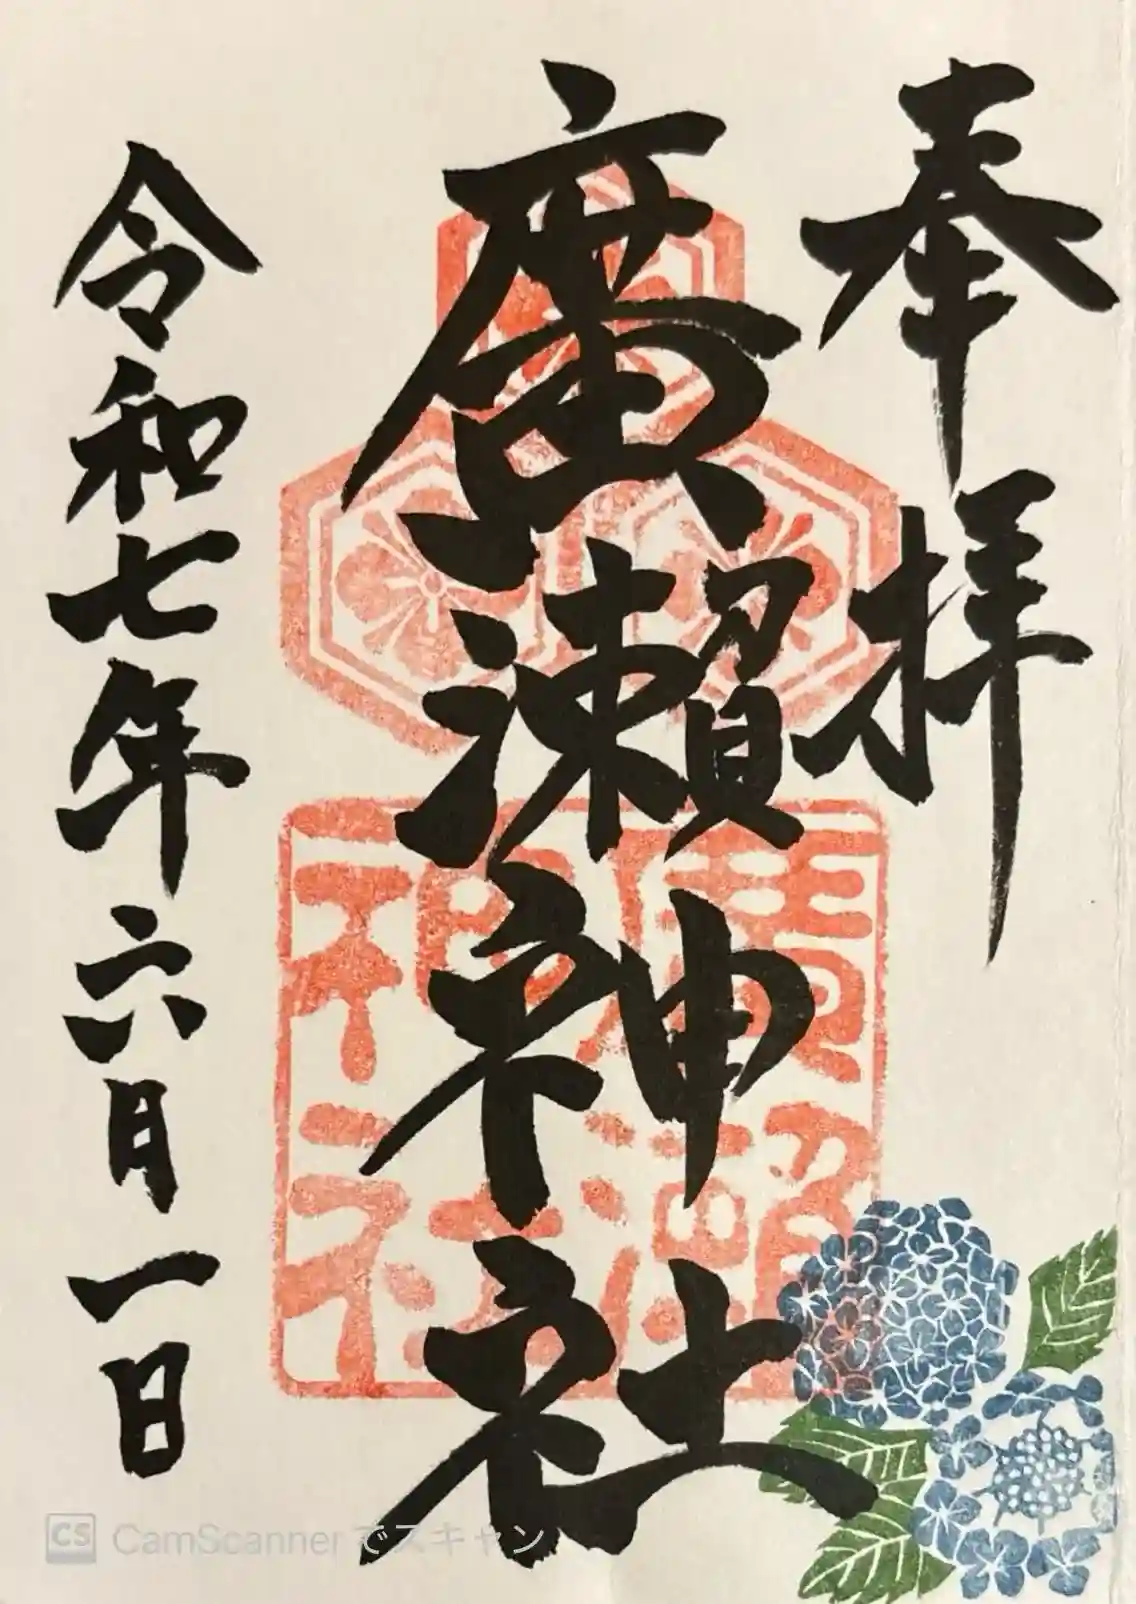 奉拝
廣瀬神社
令和七年六月一日
廣瀬神社
CS CamScannerでスキャン